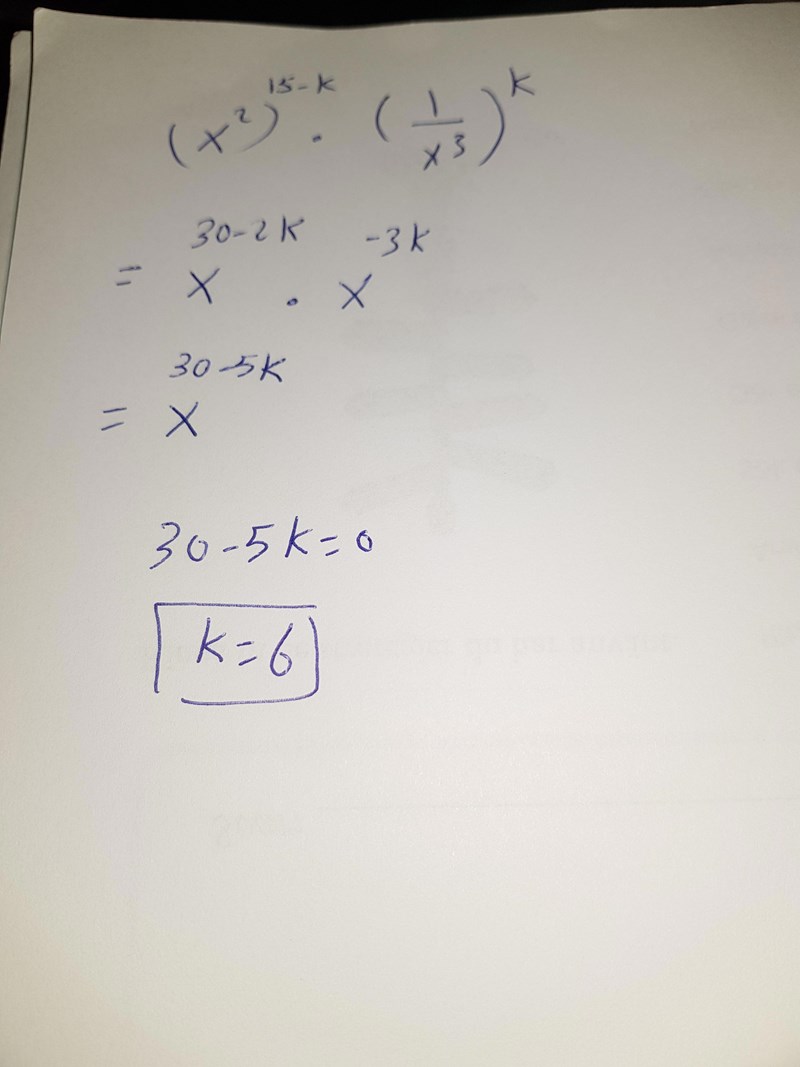 (x²)^(15-k) · (1/x³)^k
= x^(30-2k) · x^(-3k)
= x^(30-5k)
30-5k=0
k=6